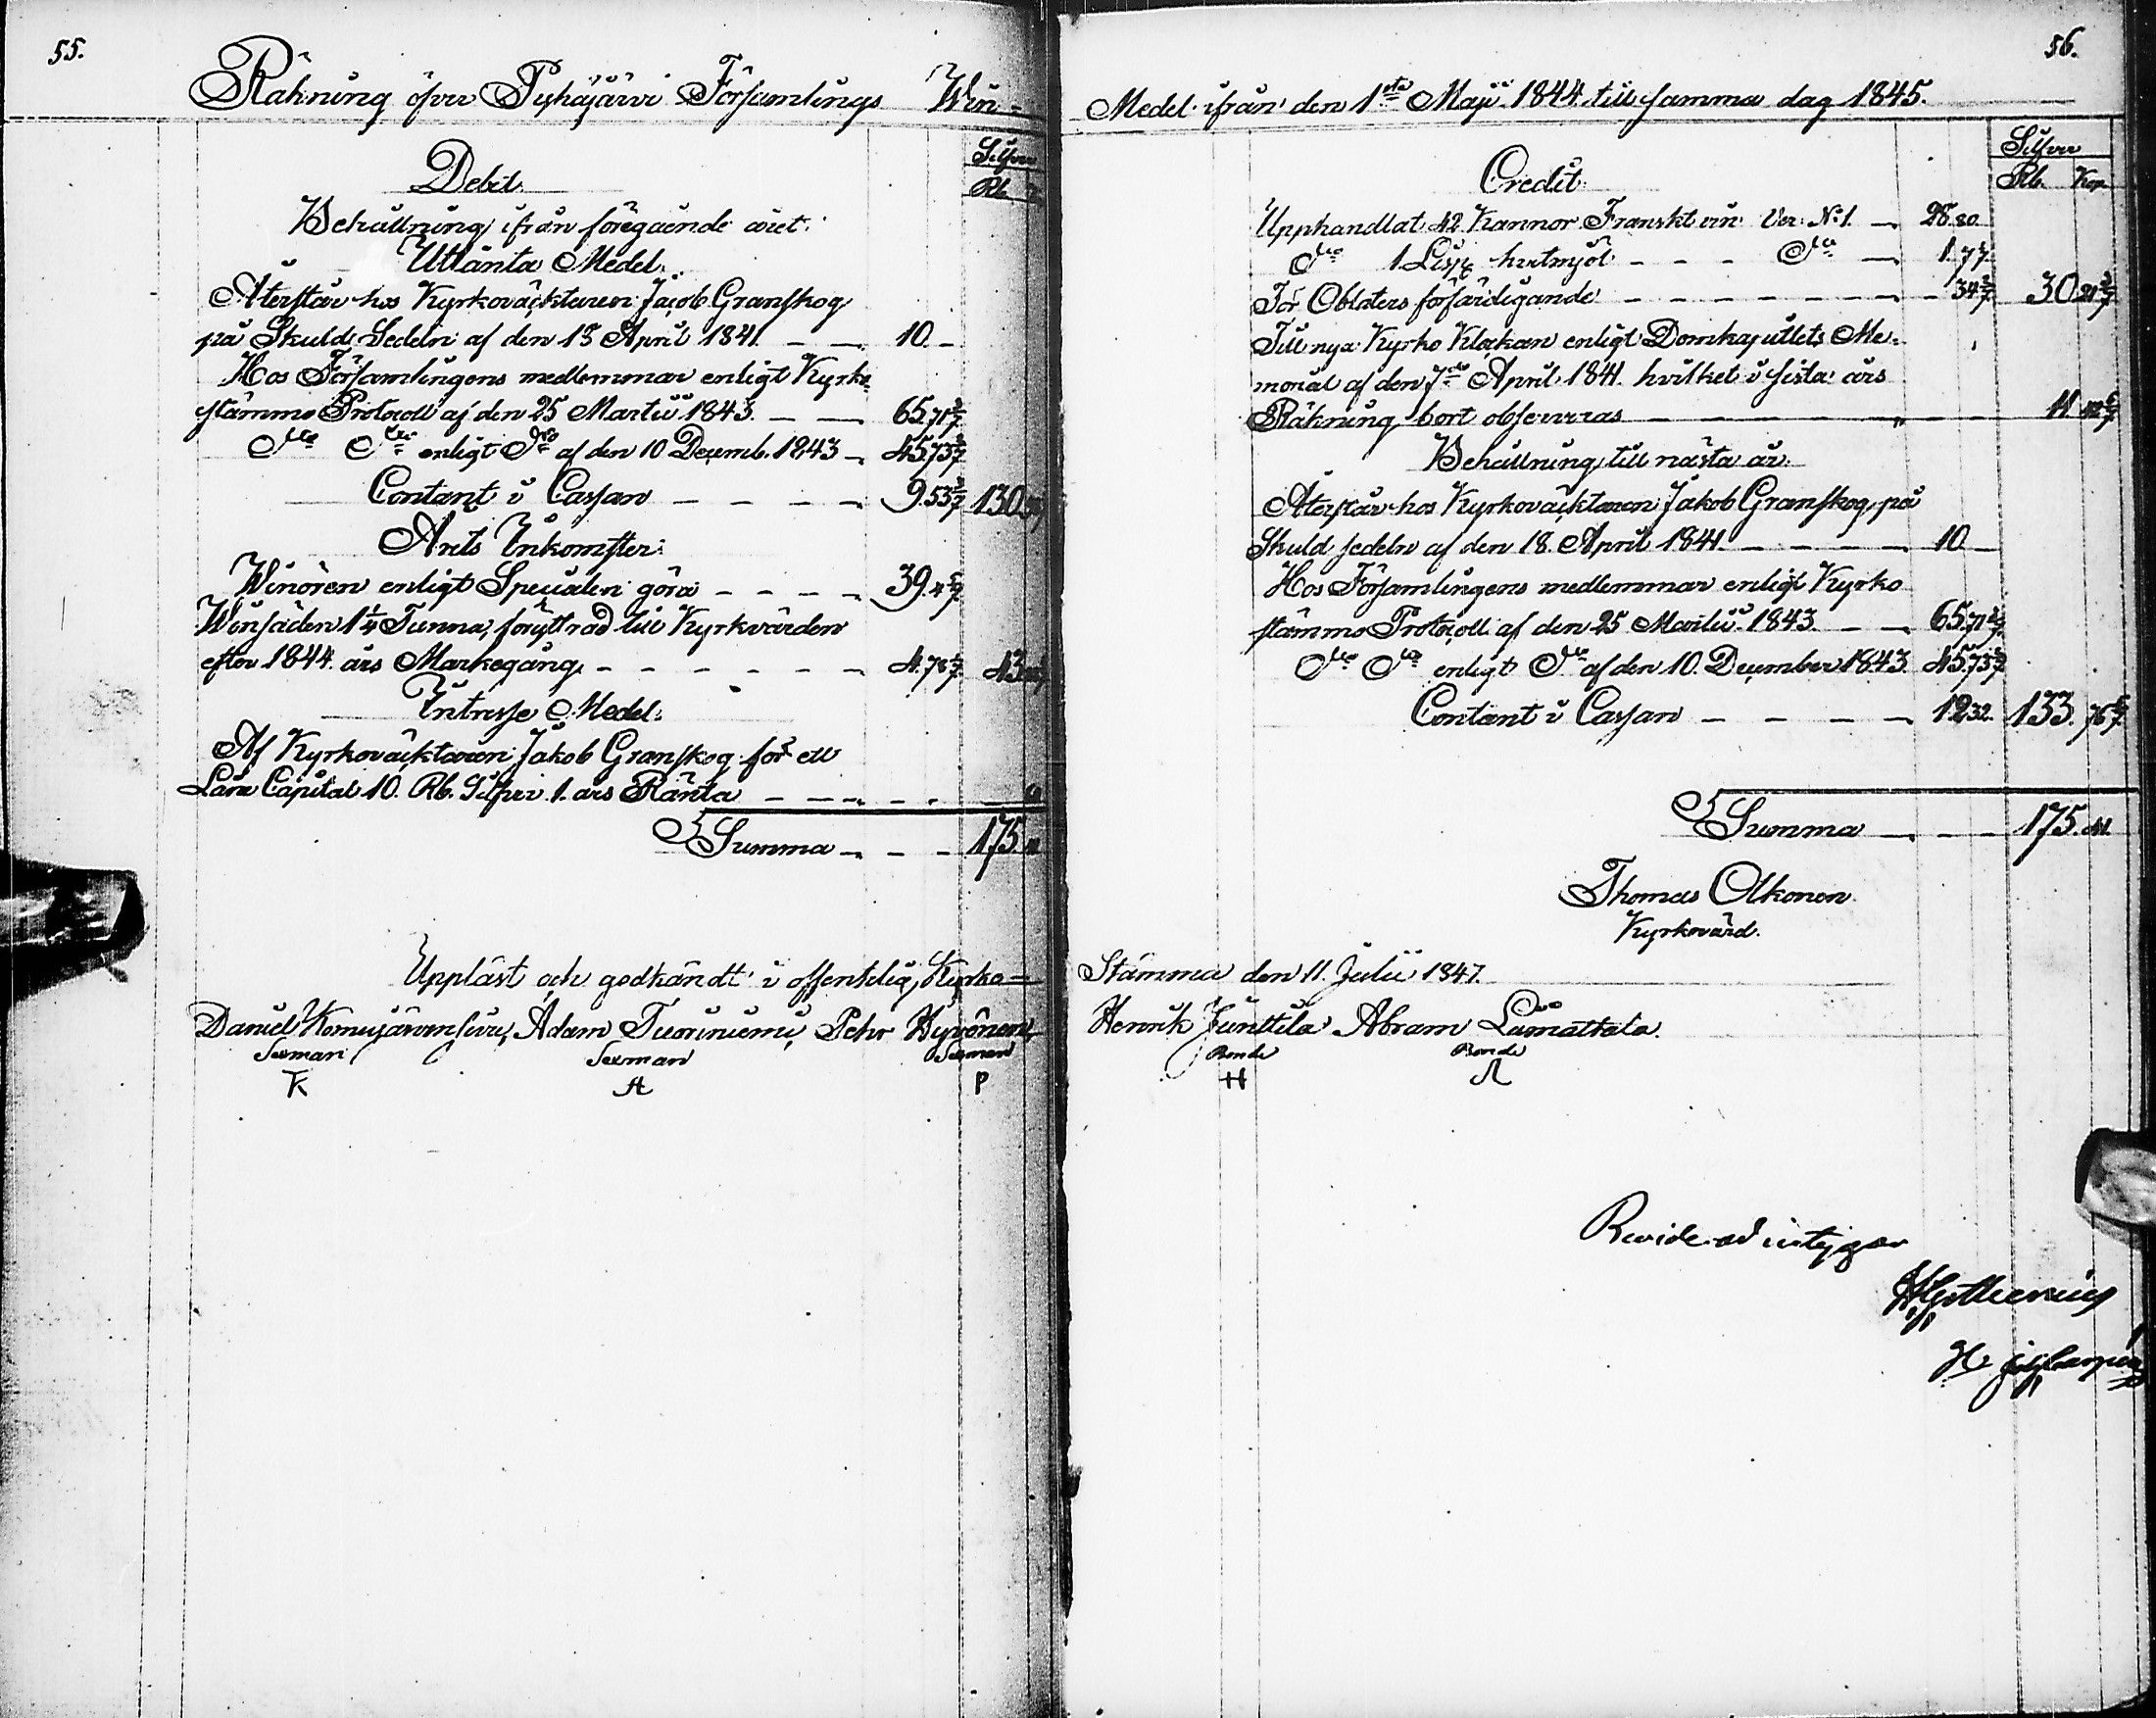 55.
Räkning öfver Pyhäjärvi Församlings Win-
Silfver
Debet.
Rb.
Behållning ifrån föregående året.
Utlånta Medel.
Återstår hos Kyrkoväcktaren Jacob Granskog
på Skulde Sedeln af den 18 April 1841. — — 10. —
Hos Församlingens medlemmar enligt Kyrko-
stämmo Protocoll af den 25 Martii 1843. — — 65.71 3/7
D:o D:o enligt D:o af den 10 Decemb. 1843 — 45.73 5/7
Contant i Cassan — — — — 9.53 1/7 130.
Årets Inkomster.
Winören enligt Specialen göra — — — — 39.4 6/7
Winsäden 1 1/4 Tunna, förÿttrad till Kyrkvärden
efter 1844 års Markegång — — — — — — 4.78 4/7 43
Intresse Medel.
Af Kyrkoväcktaren Jakob Granskog för ett
Låne Capital 10. Rb. Silfver 1. års Ränta — — — — —
Summa — — — 175.
Uppläst och godkändt i offentelig Kyrko-
Daniel Komujärvensivu, Adam Tuoriniemi, Pehr Hyvönen,
Sexman Sexman Sexman
K A P
56.
Medel ifrån den 1sta Maji 1844 till samma dag 1845.
Silfver
Credit.
Rb. Kop.
Upphandlat 42 Kannor Franskt vin Ver: N:o 1. — 28.80
D:o 1 Lisp hvetmjöl — — — D:o — 1.77
För Oblaters förfärdigande — — — — — — — 34 2/7 30.91 2/7
Till nya Kyrko Klåkan enligt Domkapitlets Me-
morial af den 7de April 1841. hvilket i sista års
Räkning bort observeras — — — — — — 11
Behållning till nästa år.
Återstår hos Kyrkoväcktaren Jakob Granskog, på
Skuld sedeln af den 18. April 1841. — — — — 10 —
Hos Församlingens medlemmar enligt Kyrko
stämmo Protocoll af den 25 Martii 1843. — — 65.71 3/7
D:o D:o enligt D:o af den 10. December 1843 45.73 5/7
Contant i Cassan — — — — 12.32. 133.76 6/7
Summa — — — 175.
Thomas Olkonen
Kyrkovärd.
Stämma den 11. Julii 1847.
Henrik Junttila Abram Lämättala.
Bonde Bonde
H A
Reviderad intygar